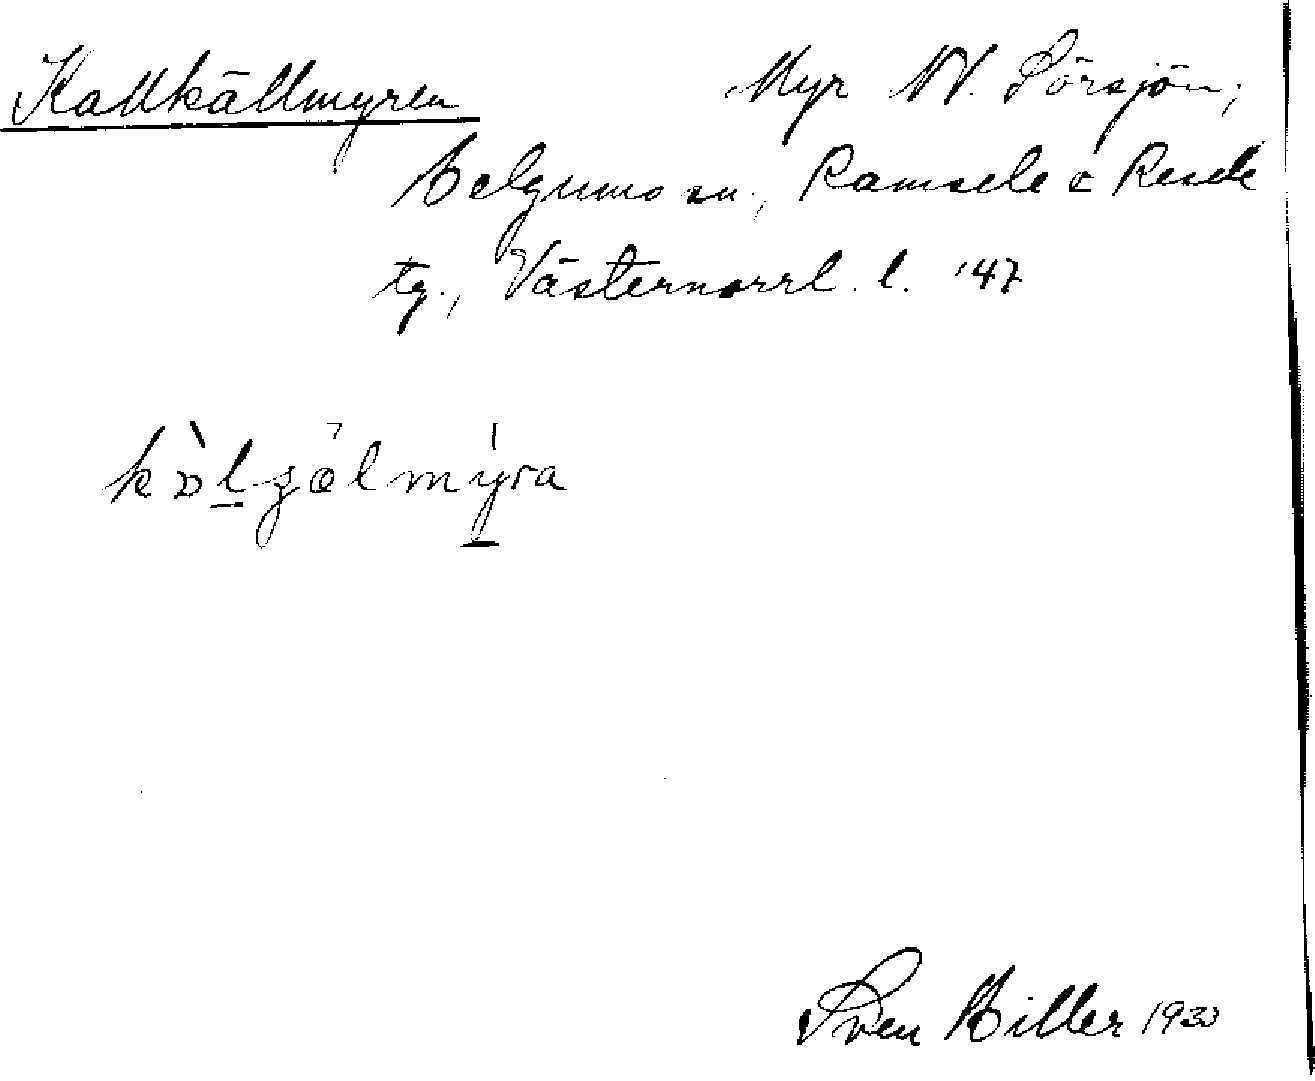 Kallkällmyren Myr NV. Sörsjön;
Helgums sn., Ramsele o Resele
tg., Västernorrl. l. '47
Sven Hiller 1930